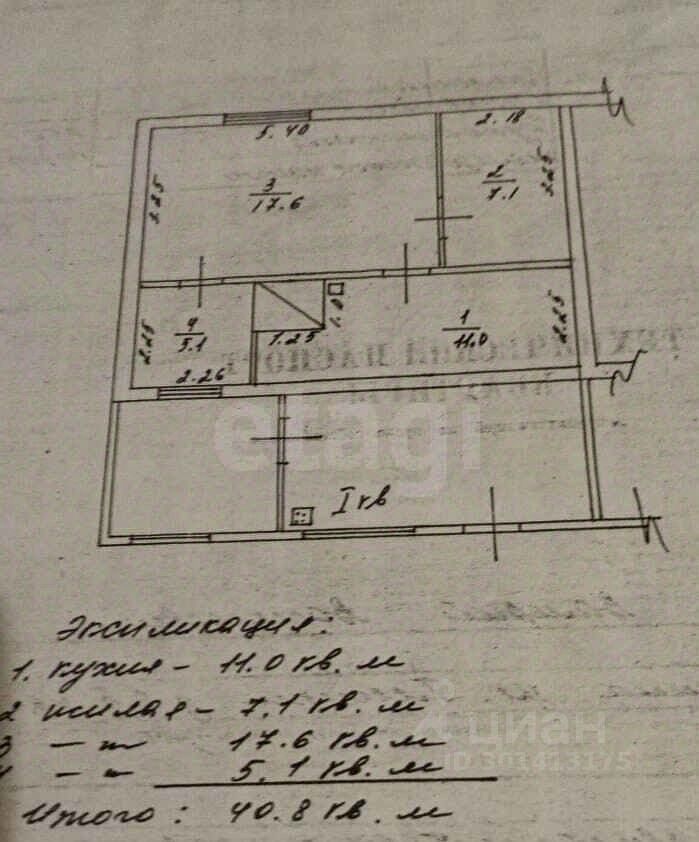 5.40
2.18
3.25
3
17.6
2
7.1
3.25
2.25
4
5.1
1.25
1.0
1
11.0
2.25
2.26
etagi
I кв
Экспликация:
1. кухня - 11.0 кв. м
2 жилая - 7.1 кв. м
3 — „ — 17.6 кв. м
4 — „ — 5.1 кв. м
Итого: 40.8 кв. м
циан